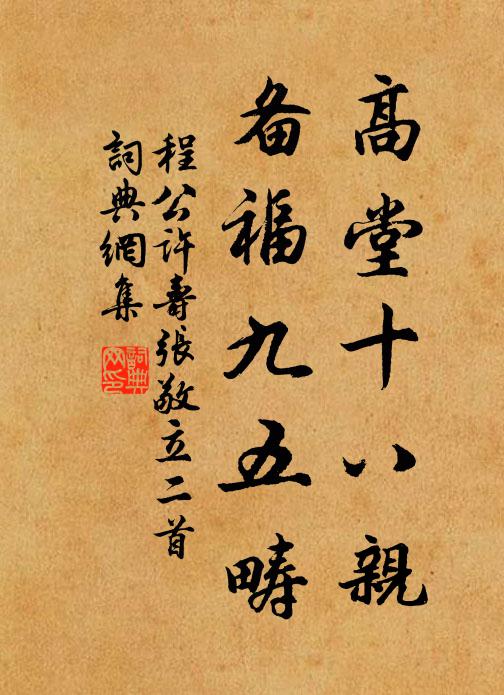 高堂十八親
备福九五疇
程公許壽張敬立二首
詞典網集
詞典网印